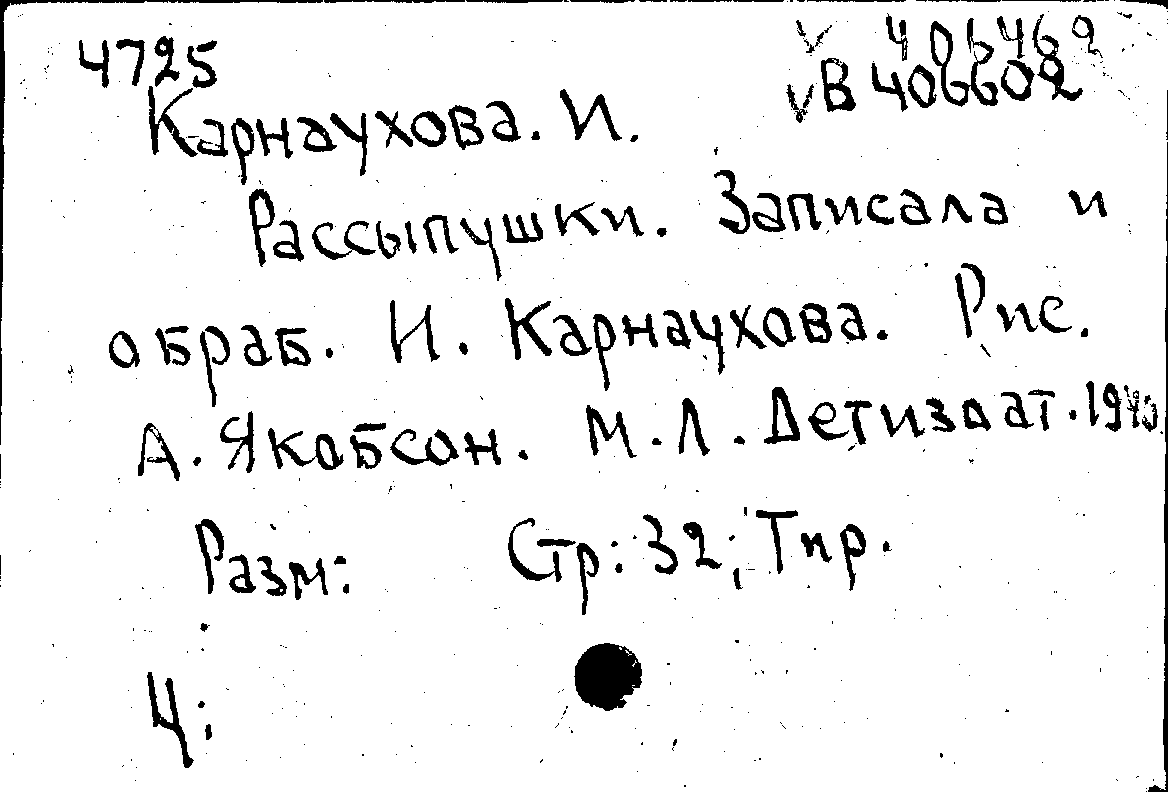 4725
√ 406469
√ В 406602
Карнаухова. И.
Рассыпушки. Записала и
обраб. И. Карнаухова. Рис.
А. Якобсон. М.Л. Детиздат. 1940
Разм: Стр: 32; Тир.
Ц: